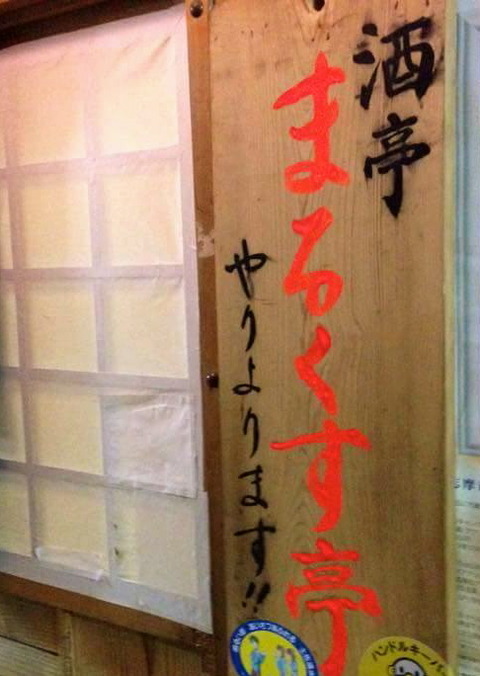 酒亭
まるくす亭
やりよります!!
ハンドルキーパー